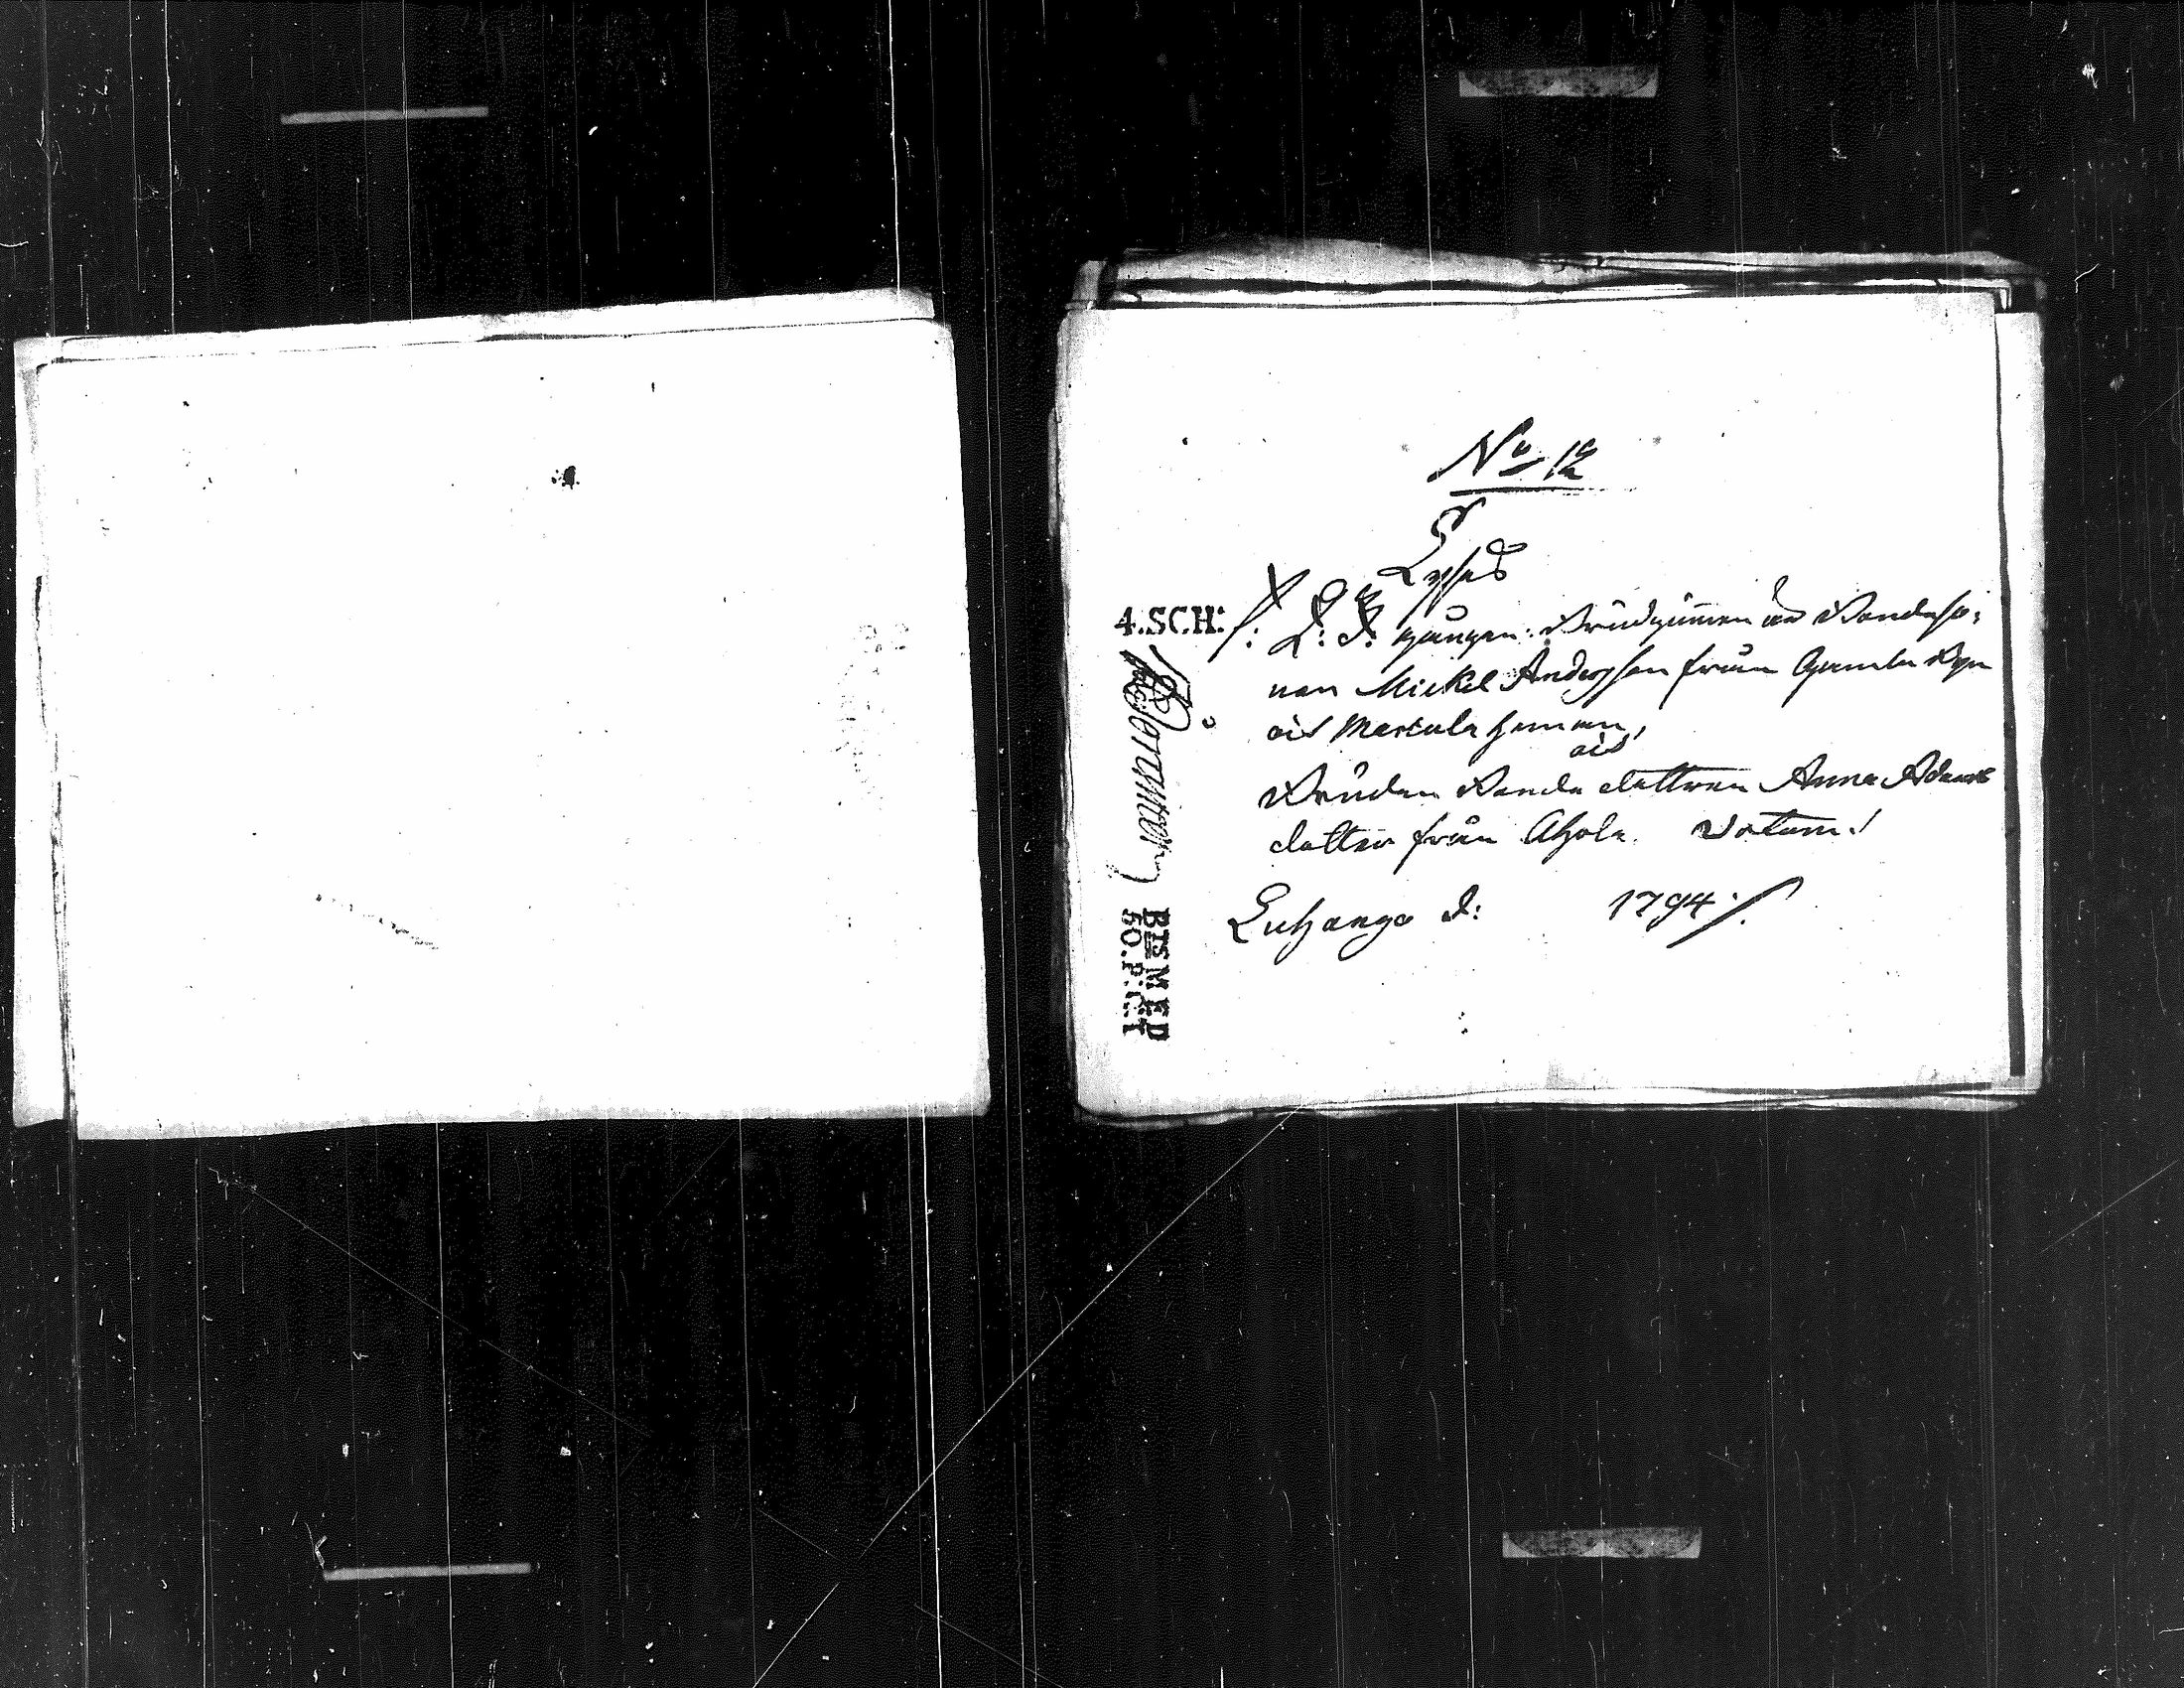 No 12
Lyses
4.SCH:
/: 1: 2: 3: gången. Brudgummen är Bondeso:
nen Mickel Andersson från Gamla Byn
ois Martula hemman,
ois
Bruden Bonde dottren Anna Adams
dotter från Ahola. Votum!
Luhango d: 1794 :/
BTS M ED
50.P:C:T